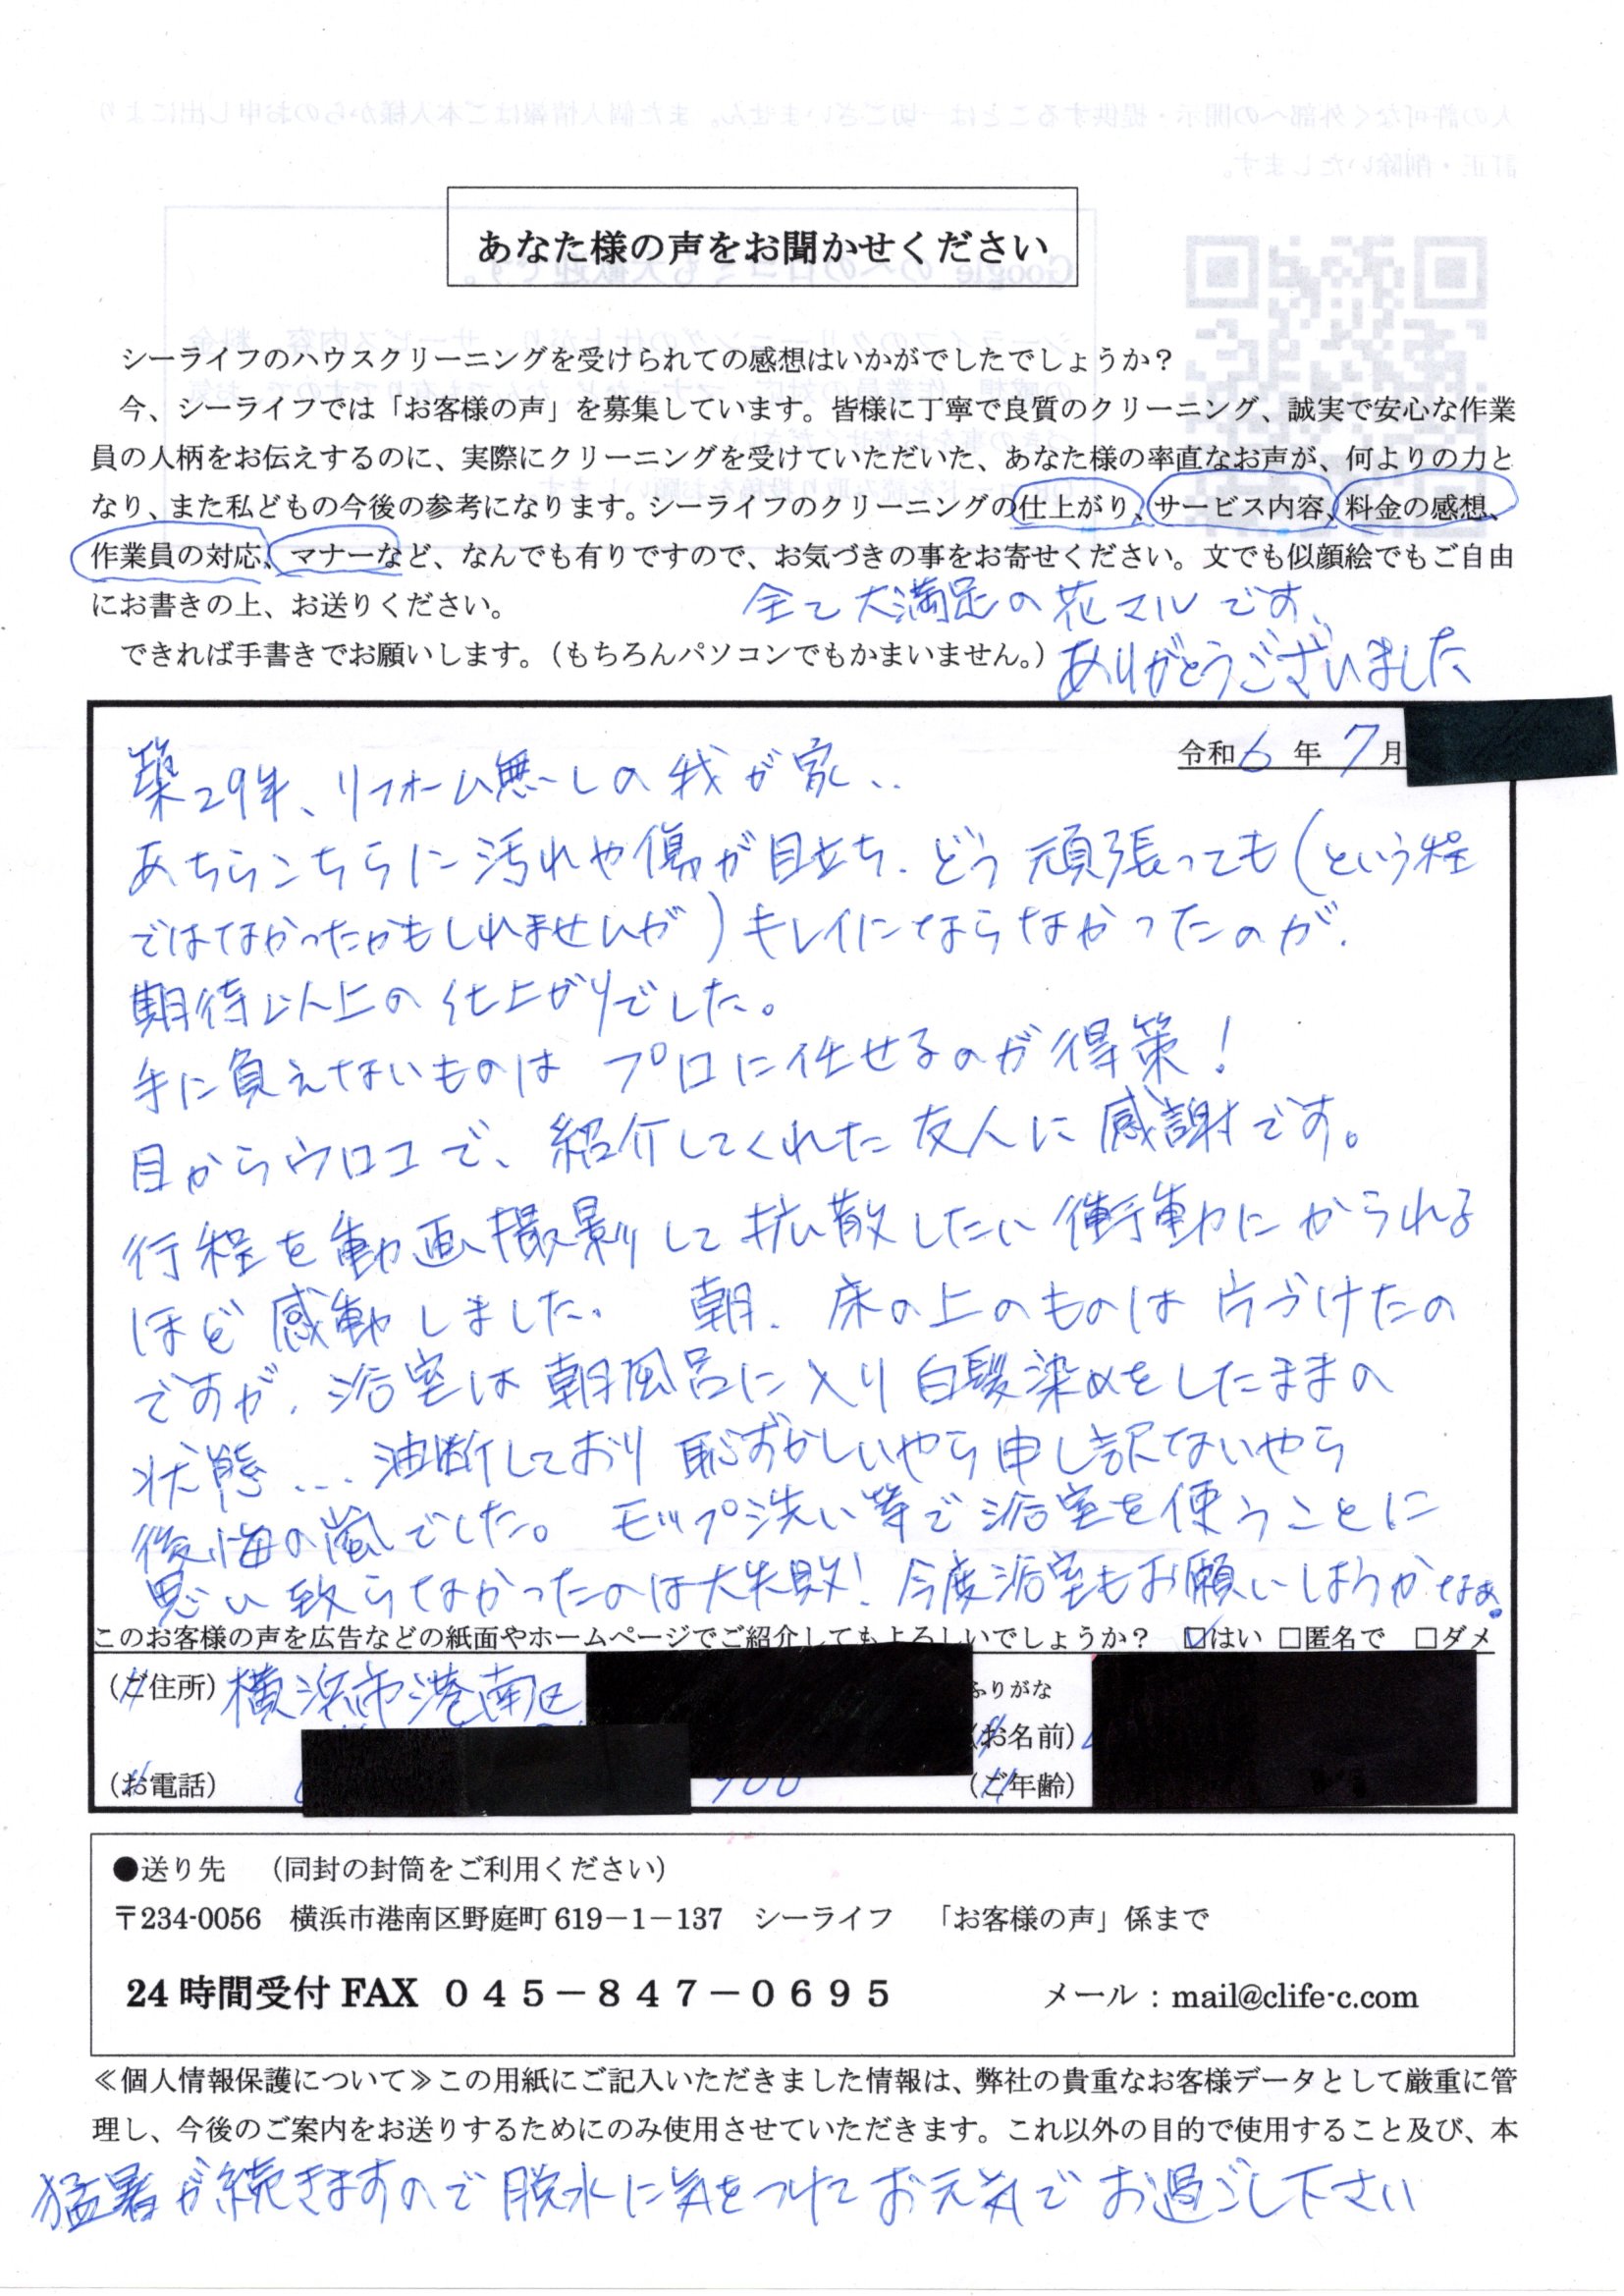 あなた様の声をお聞かせください
シーライフのハウスクリーニングを受けられての感想はいかがでしたでしょうか？
今、シーライフでは「お客様の声」を募集しています。皆様に丁寧で良質のクリーニング、誠実で安心な作業
員の人柄をお伝えするのに、実際にクリーニングを受けていただいた、あなた様の率直なお声が、何よりの力と
なり、また私どもの今後の参考になります。シーライフのクリーニングの仕上がり、サービス内容、料金の感想、
作業員の対応、マナーなど、なんでも有りですので、お気づきの事をお寄せください。文でも似顔絵でもご自由
にお書きの上、お送りください。
全て大満足の花マルです、
できれば手書きでお願いします。（もちろんパソコンでもかまいません。）
ありがとうございました
令和6年7月
築29年、リフォーム無しの我が家、、
あちらこちらに汚れや傷が目立ち、どう頑張っても（という程
ではなかったかもしれませんが）キレイにならなかったのが、
期待以上の仕上がりでした。
手に負えないものはプロに任せるのが得策！
目からウロコで、紹介してくれた友人に感謝です。
行程を動画撮影して拡散したい衝動にかられる
ほど感動しました。 朝、床の上のものは片づけたの
ですが、浴室は朝風呂に入り白髪染めをしたままの
状態...油断しており恥ずかしいやら申し訳ないやら
後悔の嵐でした。モップ洗い等で浴室を使うことに
思い致らなかったのは大失敗！今度浴室もお願いしようかなぁ。
このお客様の声を広告などの紙面やホームページでご紹介してもよろしいでしょうか？ ☑はい □匿名で □ダメ
（ご住所）横浜市港南区
ふりがな
（お名前）
（お電話）
（ご年齢）
●送り先 （同封の封筒をご利用ください）
〒234-0056 横浜市港南区野庭町619－1－137 シーライフ 「お客様の声」係まで
24時間受付FAX ０４５－８４７－０６９５ メール：mail@clife-c.com
≪個人情報保護について≫この用紙にご記入いただきました情報は、弊社の貴重なお客様データとして厳重に管
理し、今後のご案内をお送りするためにのみ使用させていただきます。これ以外の目的で使用すること及び、本
猛暑が続きますので脱水に気をつけてお元気でお過ごし下さい